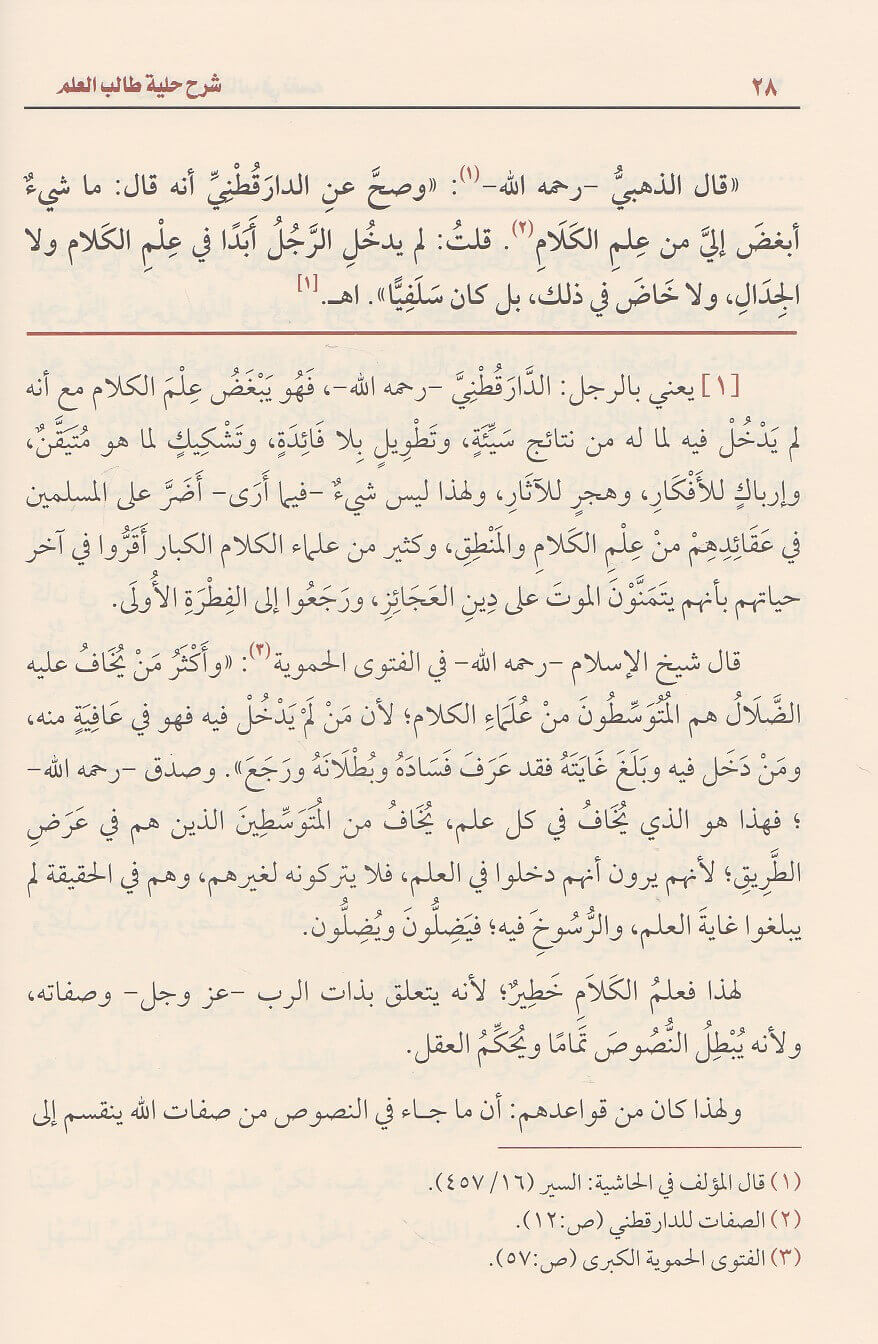 شرح حلية طالب العلم ٢٨
«قال الذهبيُّ -رحمه الله-(١): «وصحَّ عنِ الدارَقُطْنِيِّ أنه قال: ما شيءٌ
أبغضَ إليَّ من عِلمِ الكَلَامِ(٢). قلتُ: لم يدخُلِ الرَّجُلُ أَبَدًا في عِلْمِ الكَلام ولا
الجِدَالِ، ولا خَاضَ في ذلك، بل كان سَلَفِيًّا». اهـ.[١]
[١] يعني بالرجل: الدَّارَقُطْنِيَّ -رحمه الله-، فَهُو يَبْغَضُ عِلْمَ الكلام مع أنه
لم يَدْخُلْ فيه لما له من نتائج سَيِّئَةٍ، وتَطْوِيلٍ بِلا فَائِدَةٍ، وتَشْكِيكٍ لما هو مُتَيَقَّنٌ،
وإرباكٍ للأَفْكَارِ، وهجرٍ للآثَارِ، ولهذا ليس شيءٌ -فيما أَرَى- أَضَرَّ على المسلمين
في عَقَائِدِهِمْ منْ عِلْمِ الكَلامِ والمَنْطِقِ، وكثير من علماء الكلام الكبار أَقَرُّوا في آخر
حياتهم بأنهم يتَمَنَّوْنَ الموتَ على دِينِ العَجَائِزِ، ورَجَعُوا إلى الفِطْرَةِ الأُولَى.
قال شيخ الإسلام -رحمه الله- في الفتوى الحموية(٣): «وأَكْثَرُ مَنْ يُخَافُ عليه
الضَّلَالُ هم المُتَوَسِّطُونَ منْ عُلَمَاءِ الكلام؛ لأن مَنْ لَمْ يَدْخُلْ فيه فهو في عَافِيَةٍ منه،
ومَنْ دَخَل فيه وبَلَغَ غَايَتَهُ فقد عَرَفَ فَسَادَهُ وبُطْلَانَهُ ورَجَعَ». وصدق -رحمه الله-
؛ فهذا هو الذي يُخَافُ في كل علم، يُخَافُ من المُتَوَسِّطِينَ الذين هم في عَرَضِ
الطَّرِيقِ؛ لأنهم يرون أنهم دخلوا في العلم، فلا يتركونه لغيرهم، وهم في الحقيقة لم
يبلغوا غايةَ العلم، والرُّسُوخَ فيه؛ فيَضِلُّونَ ويُضِلُّون.
لهذا فعلمُ الكَلَامِ خَطِيرٌ؛ لأنه يتعلق بذات الرب -عز وجل- وصفاته،
ولأنه يُبْطِلُ النُّصُوصَ تَمَامًا ويُحَكِّمُ العقل.
ولهذا كان من قواعدهم: أن ما جاء في النصوص من صفات الله ينقسم إلى
(١) قال المؤلف في الحاشية: السير (١٦/ ٤٥٧).
(٢) الصفات للدارقطني (ص:١٢).
(٣) الفتوى الحموية الكبرى (ص:٥٧).